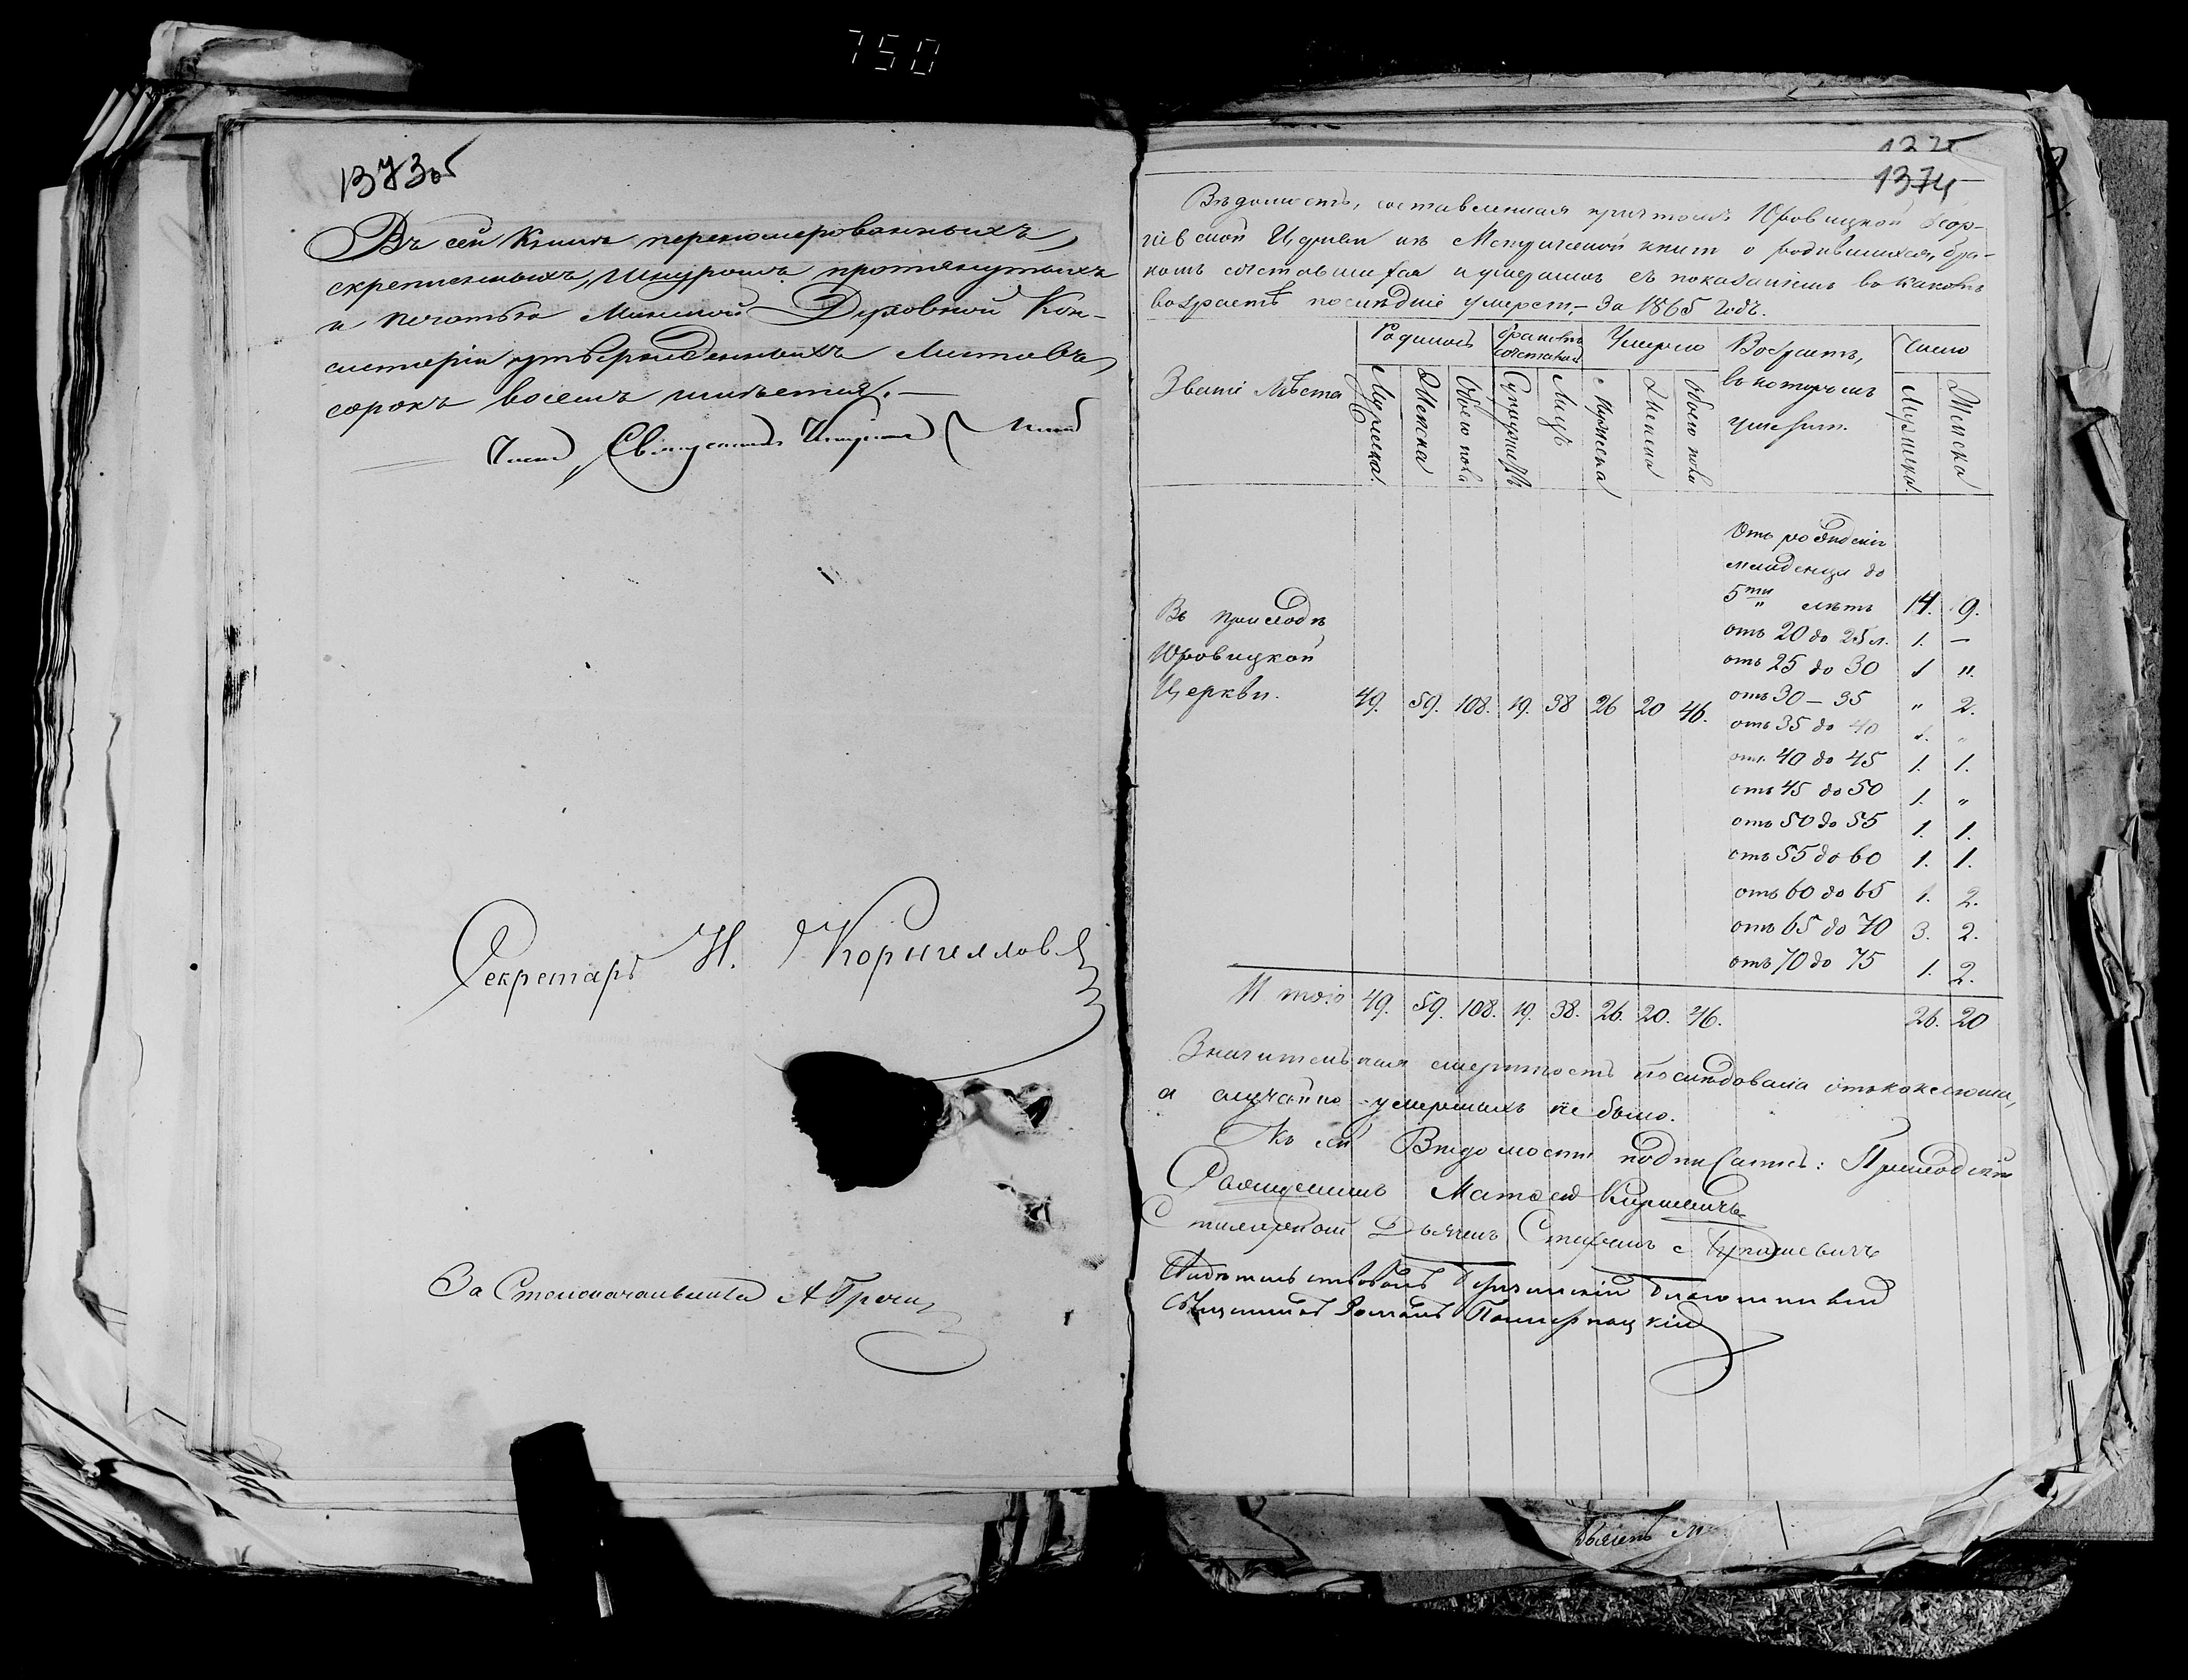 750
1373об
Въ сей Книгѣ перенумерованныхъ,
скрепленныхъ, Шнуромъ протянутыхъ
и печатью Минской Духовной Кон-
систеріи утвержденныхъ Листовъ,
сорокъ восемь имѣется. —
Членъ Священникъ
Секретарь Н. Корнилловъ
За Столоначальника А
1374
Вѣдомость, составленная причтомъ Юровицкой Геор-
гіевской Церкви изъ Метрической книги о родившихся, бра-
комъ сочетавшихся и умершихъ съ показаніемъ въ какомъ
возрастѣ послѣдніе умерли, – за 1865 годъ.
Званіе мѣста
Родилось
Браковъ сочетаній
Умерло
Возрастъ,
въ которомъ
умерли.
Число
Мужеска.
Женска
Обоего пола
Супружествъ
Лицъ
Мужеска
Женска
Обоего пола
Мужеска.
Женска
Въ приходѣ
Юровицкой
Церкви.
49. 59. 108. 19. 38 26 20 46.
Отъ рожденія
младенца до
5ти лѣтъ 14. 9.
отъ 20 до 25 л. 1. —
отъ 25 до 30 1 "
отъ 30 – 35 " 2.
отъ 35 до 40 1. "
отъ 40 до 45 1. 1.
отъ 45 до 50 1. "
отъ 50 до 55 1. 1.
отъ 55 до 60 1. 1.
отъ 60 до 65 1. 2.
отъ 65 до 70 3. 2.
отъ 70 до 75 1. 2.
Итого 49. 59. 108. 19. 38. 26. 20. 46. 26. 20
Значительная смертность послѣдовала отъ коклюша,
а случайно-умершихъ не было.
Къ сей Вѣдомости подписались: Приходскій
Священникъ Матфей
Дьячекъ Стефанъ
Свидѣтельствовалъ Благочинный
Священникъ Романъ
Дьячекъ